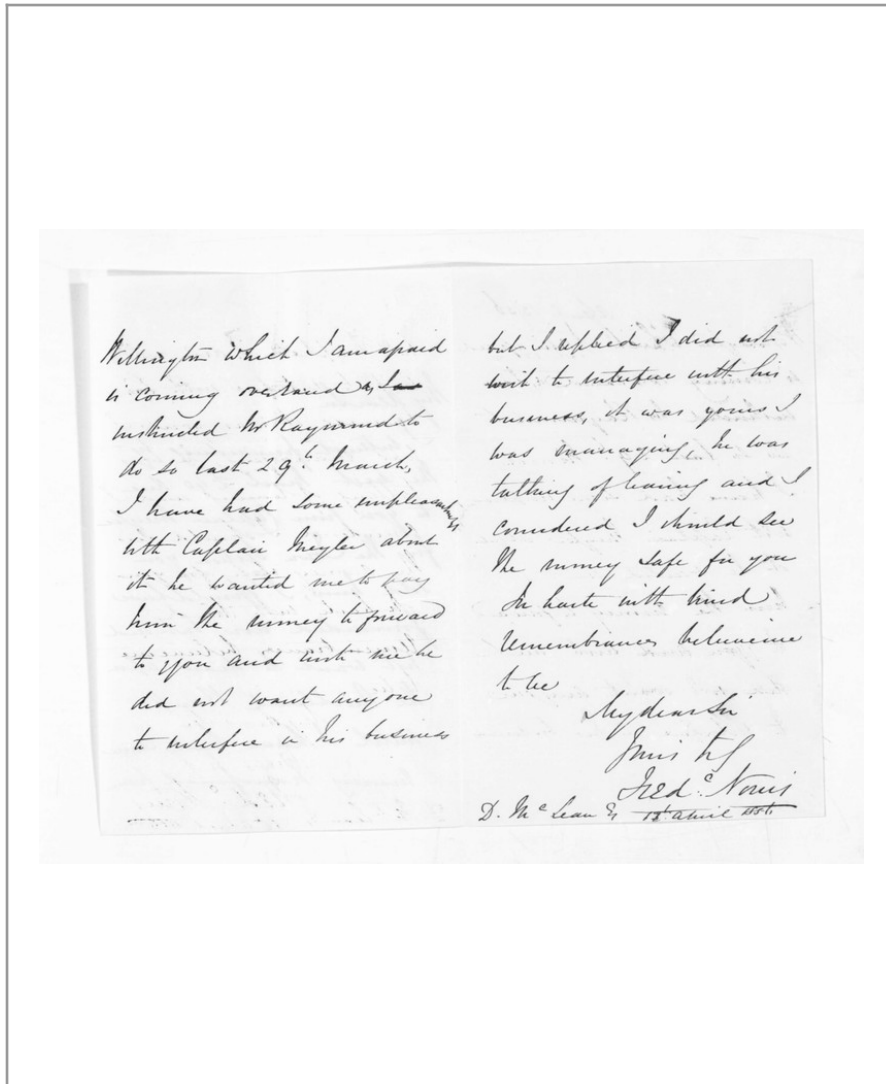 Wellington which I am afraid
is coming overland as I
instructed Mr Raymond to
do so last 29th March,
I have had some unpleasantness
with Captain about
it he wanted me to pay
him the money to forward
to you and he
did not want anyone
to interfere in his business
but I replied I did not
wish to interfere with his
business, it was yours I
was managing, he was
talking of leaving and I
considered I should see
the money safe for you
In haste with kind
remembrances believe me
to be
My dear Sir
Yours
Norris
D. McLean Esq 13 April